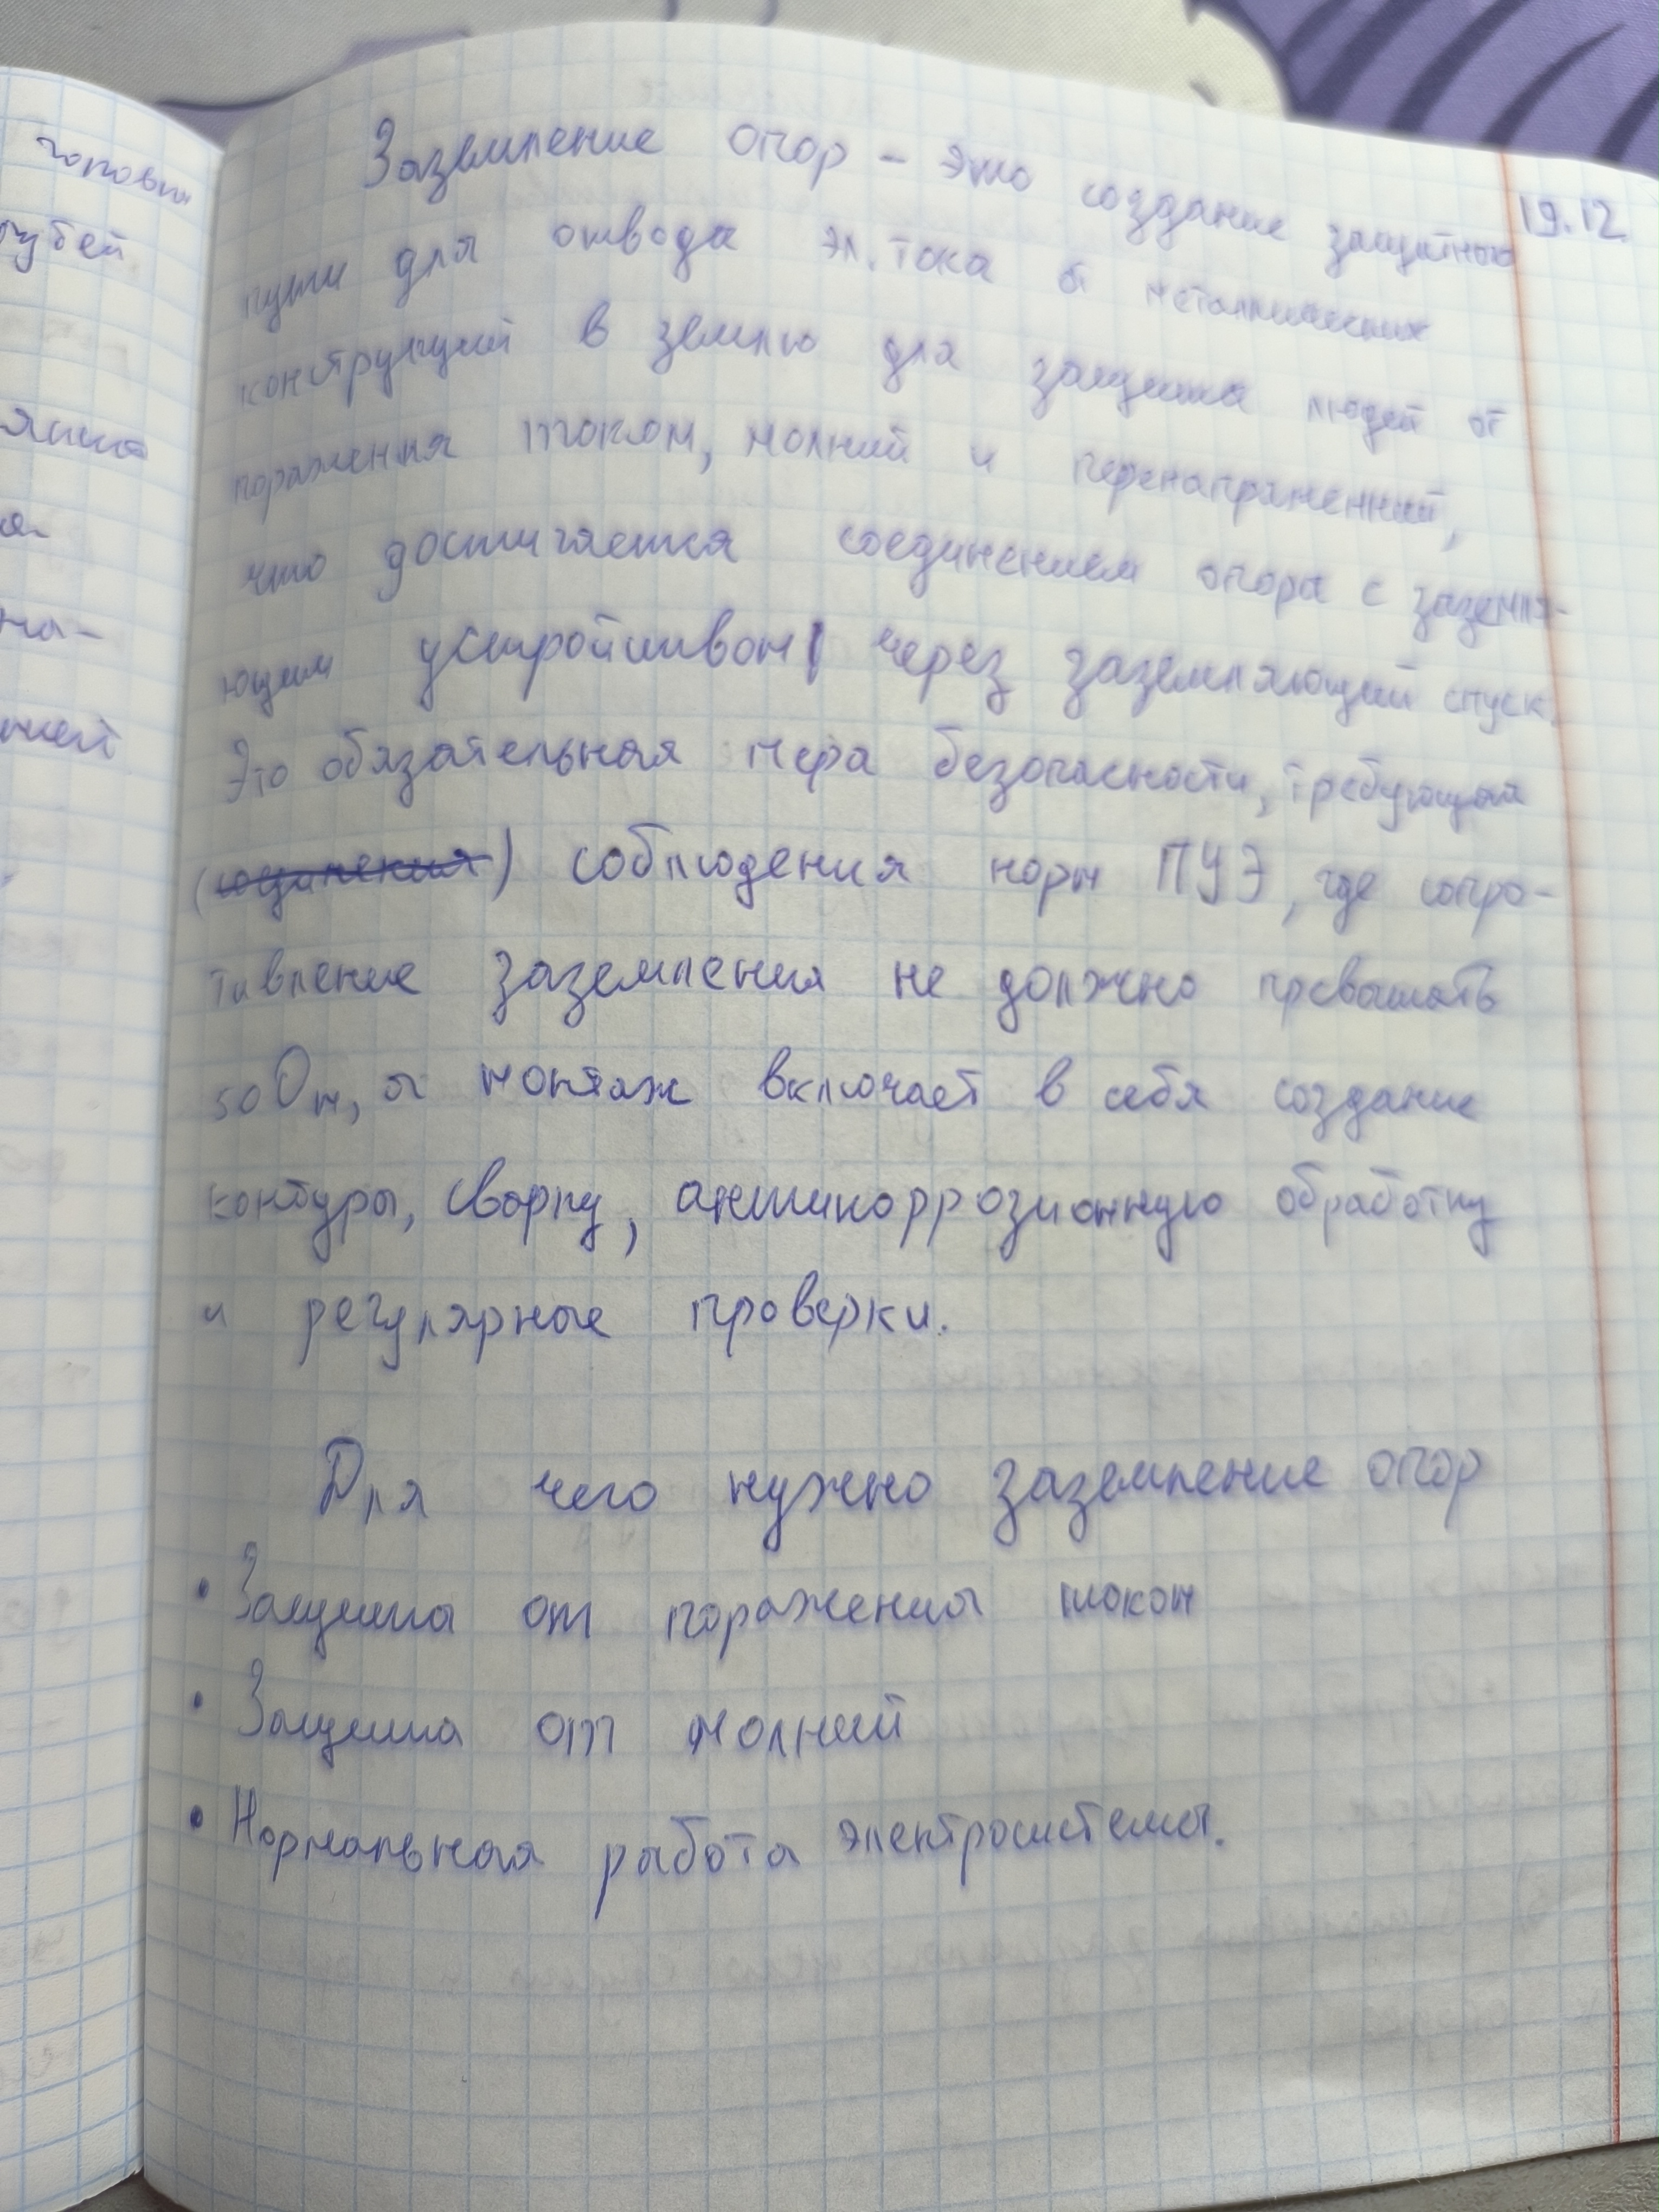 19.12.
Заземление опор - это создание защитного
пути для отвода эл. тока от металлических
конструкций в землю для защиты людей от
поражения током, молний и перенапряжений,
что достигается соединением опоры с заземля-
ющим устройством через заземляющий спуск.
Это обязательная мера безопасности, требующая
(соединения) соблюдения норм ПУЭ, где сопро-
тивление заземления не должно превышать
50 Ом, а монтаж включает в себя создание
контуры, сварку, антикоррозионную обработку
и регулярные проверки.
Для чего нужно заземление опор
• Защита от поражения током
• Защита от молний
• Нормальная работа электросистемы.